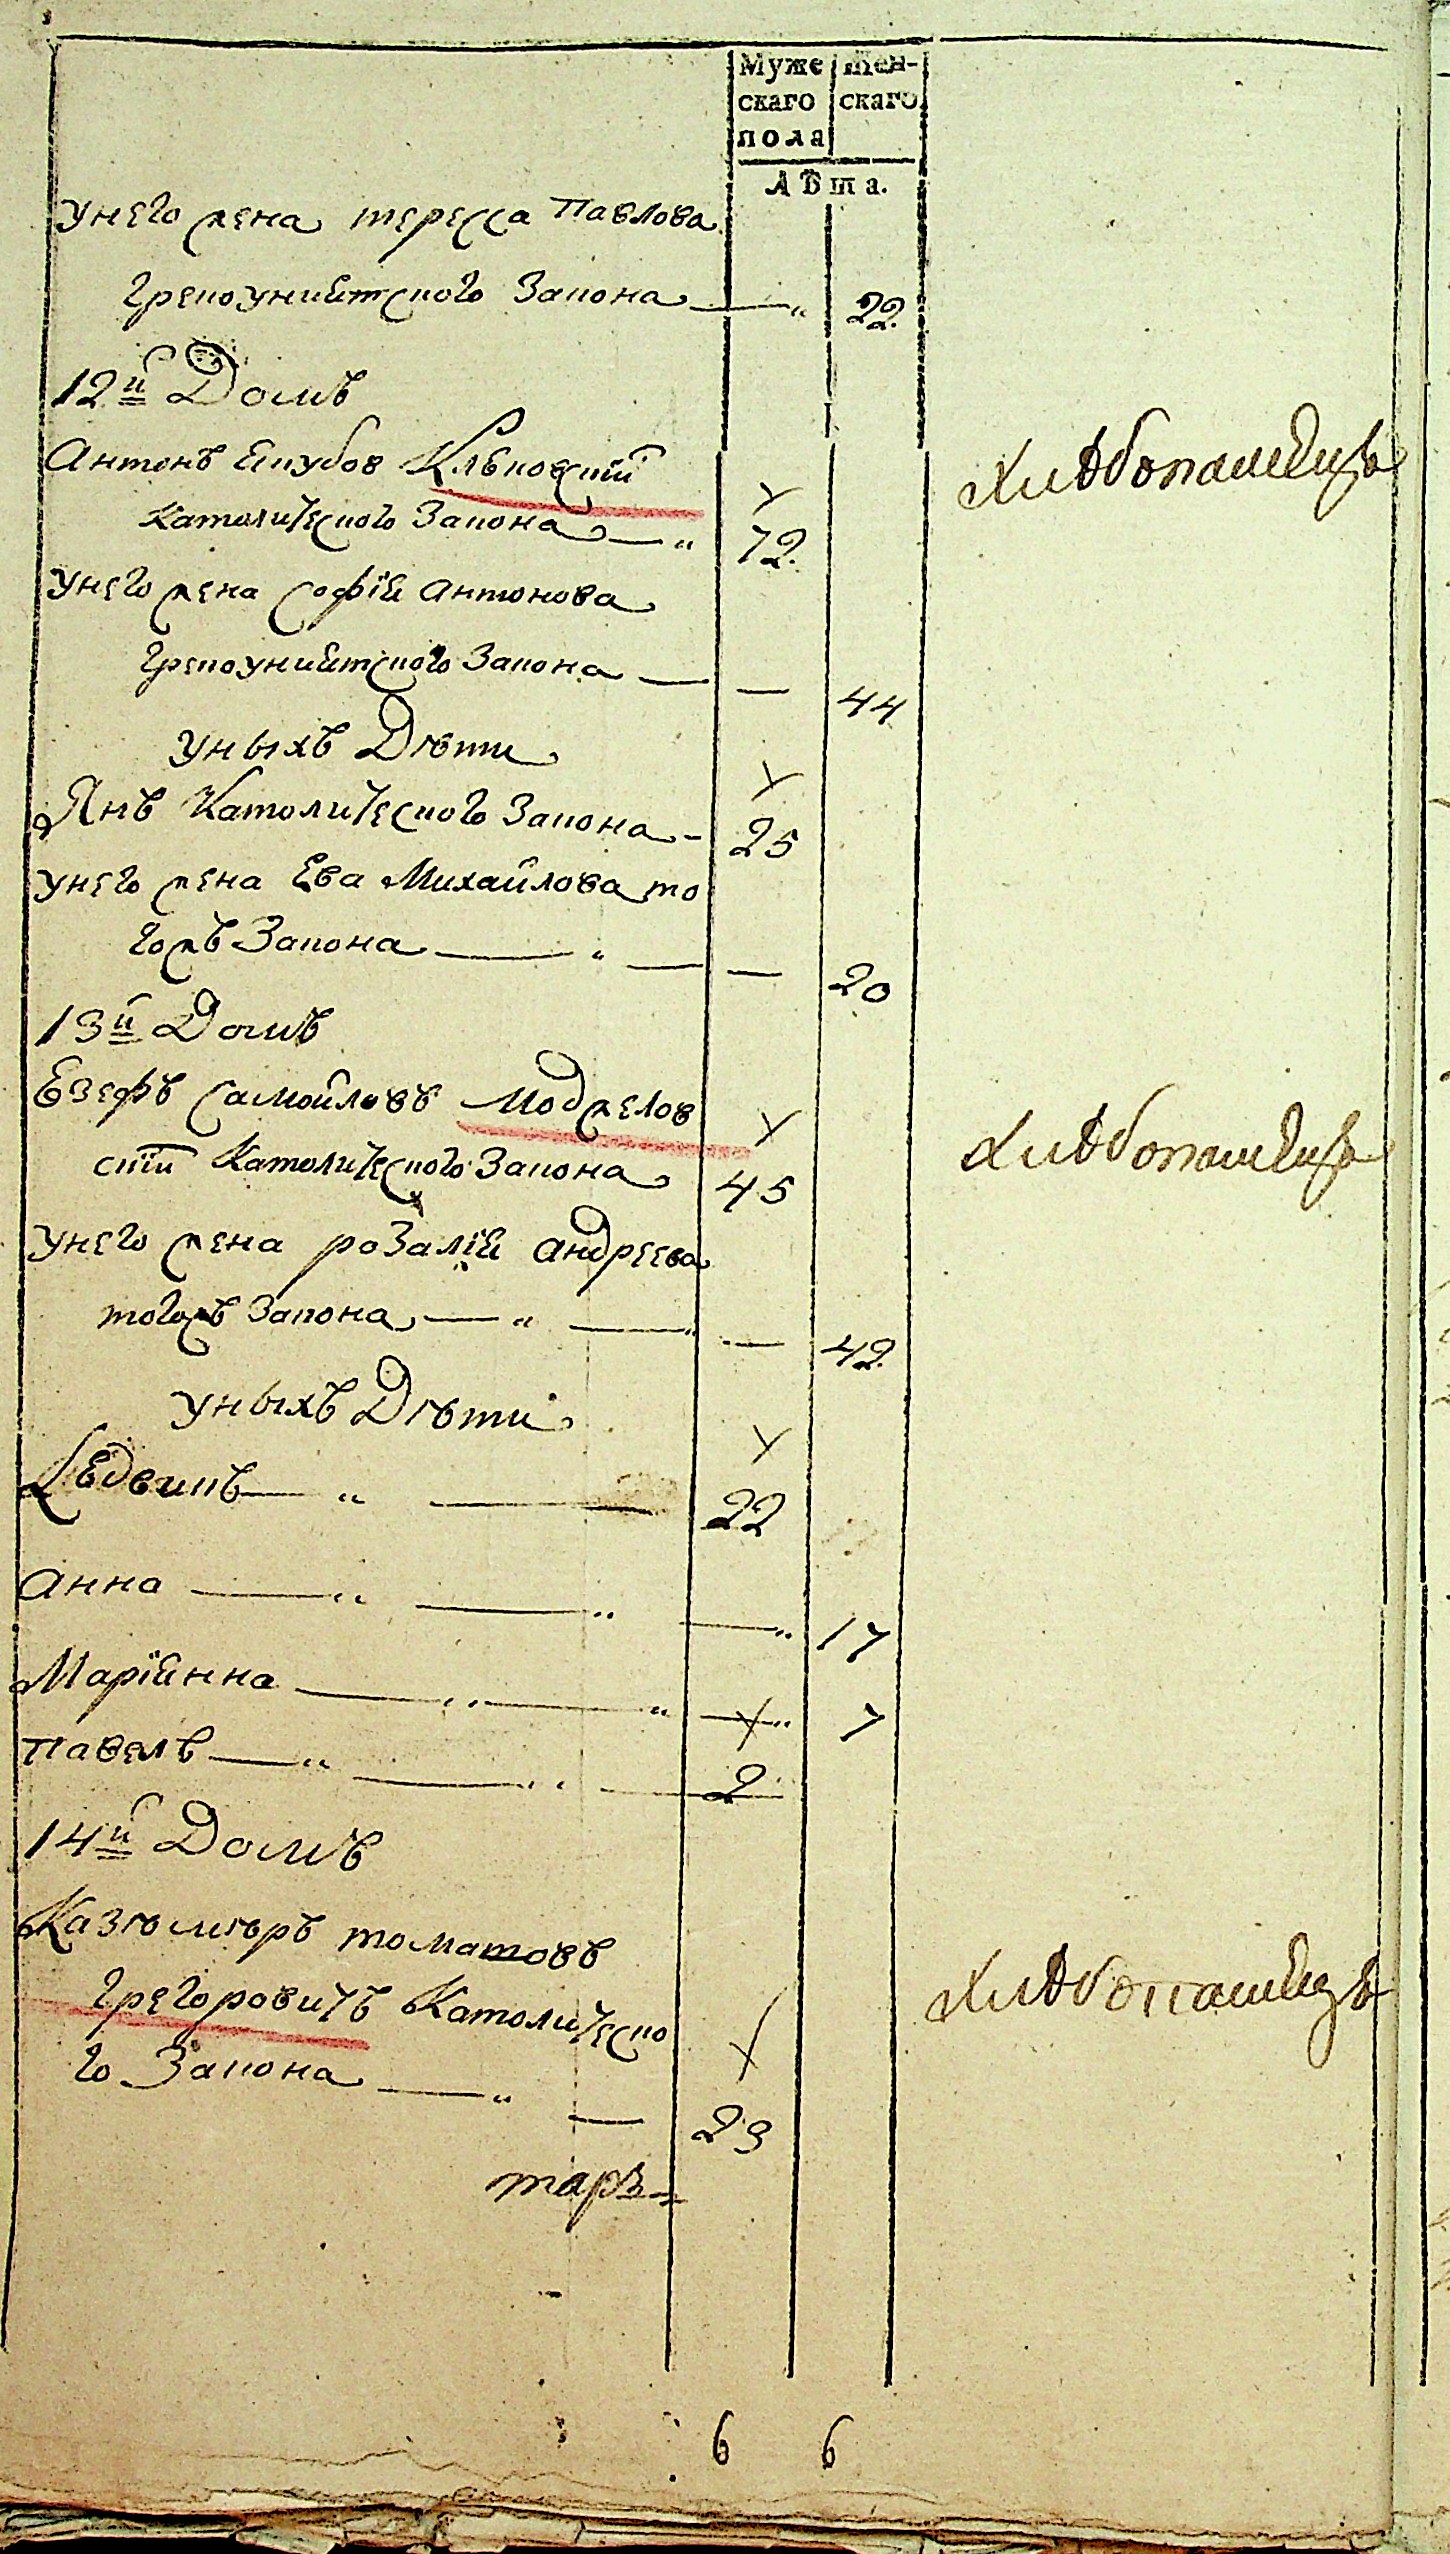 Муже
скаго
пола
Жен-
скаго
Лѣта.
унего жена тересса Павлова
Грекоунийтского Закона — 22.
12й Домъ
Антонъ Якубов Клѣковскій
Католического Закона — 72.
Хлѣбопашецъ
унего жена софія антонова
Грекоунийтского Закона — — 44
уныхъ Дѣти
Янъ Католического Закона - 25
унего жена Ева Михайлова то
гожъ Закона — — — 20
13й Домъ
Езефъ самойловъ Моджелов
скій Католического Закона 45
Хлѣбопашецъ
унего жена розалія андреева
тогожъ Закона — — — 42
уныхъ Дѣти
Людвикъ — — 22
анна — — — 17
Марійнна — — — 7
Павелъ — — — 2
14й Домъ
Казѣмѣръ томашовъ
Грегоровичъ Католическо
го Закона — — 23
Хлѣбопашецъ
6 6